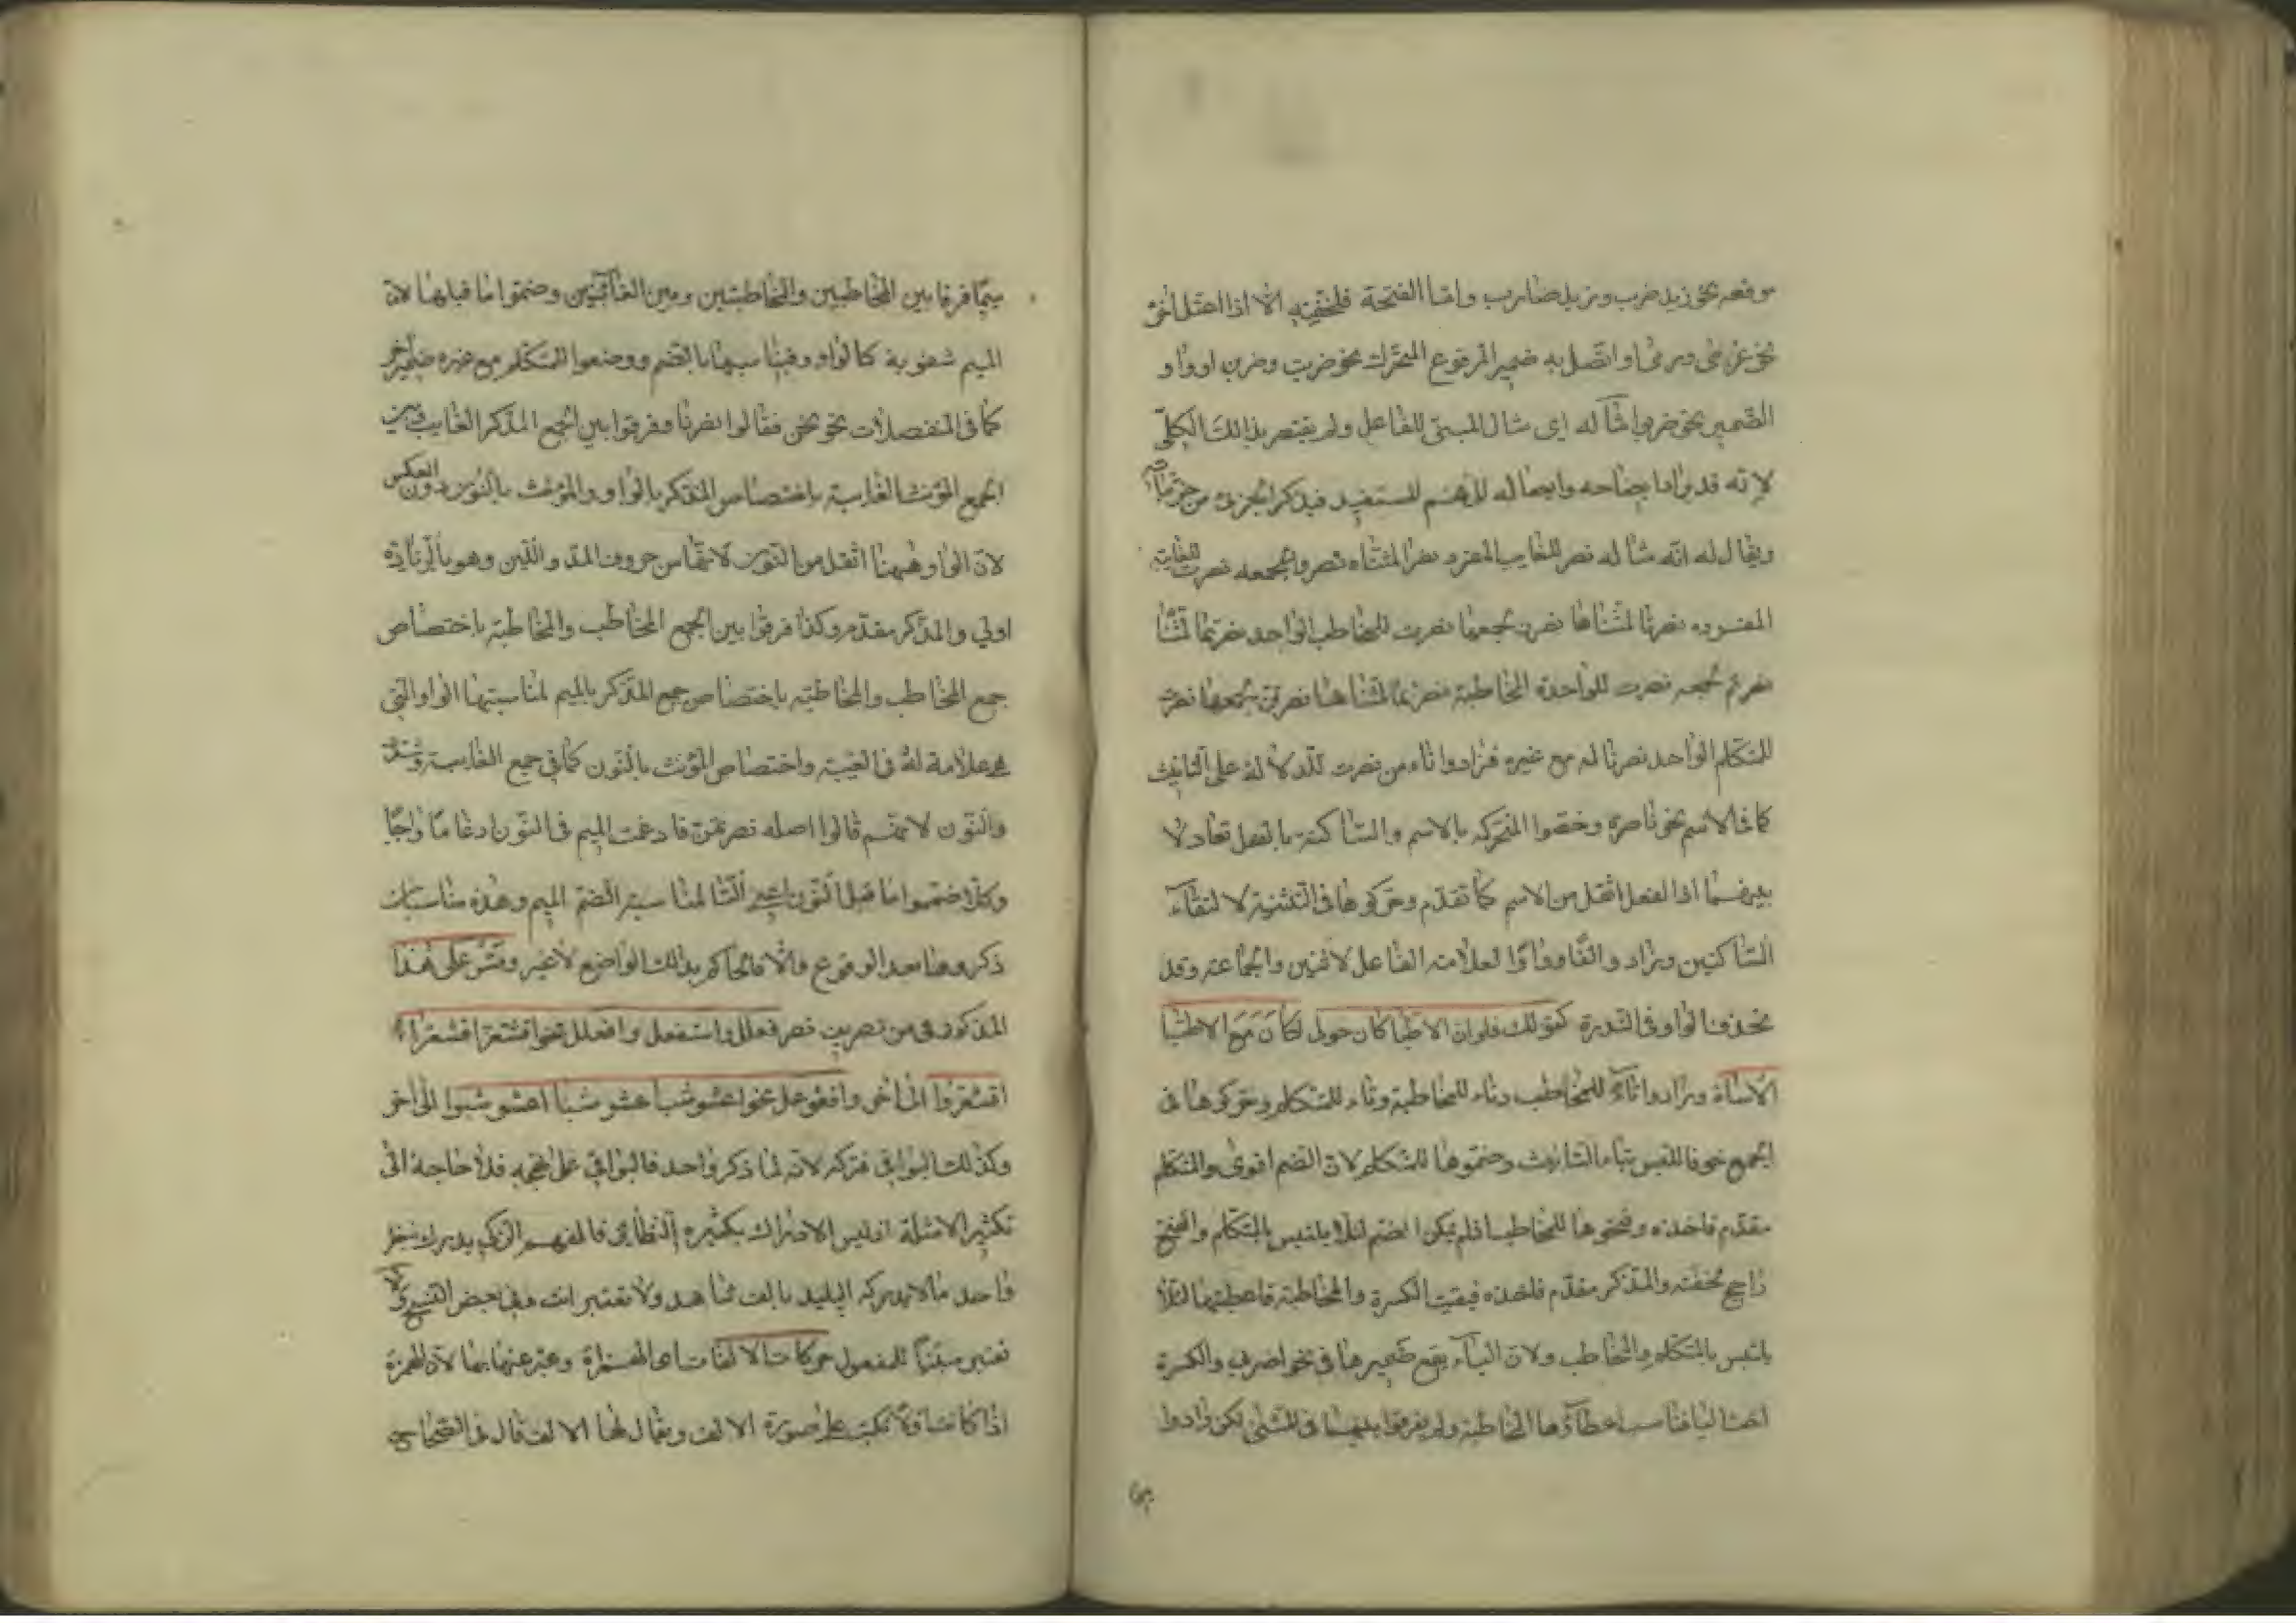 موقعه نحو زيد ضرب وزيد ضارب واما الفتحة فلخفته الا اذا اعتل اخره
نحو غزى ورمى او اتصل به ضمير المرفوع المتحرك نحو ضربت وضربن او واو
الضمير نحو ضربوا مثاله اى مثال المبنى للفاعل ولم يقتصر بذلك الكلى
لانه قد يراد ايضاحه وايصاله للفهم المستفيد فيذكر الجزئى من جزئياته
ويقال له انه مثاله نصر للغايب المفرد نصرا لمثناه نصروا لجمعه نصرت للغايبة
المفرده نصرتا لمثناها نصرن لجمعها نصرت للمخاطب الواحد نصرتما لمثناه
نصرتم لجمعه نصرت للواحدة المخاطبة نصرتما لمثناها نصرتن لجمعها نصرت
للمتكلم الواحد نصرنا له مع غيره فزادوا تاء من نصرت للدلالة على التانيث
كما فى الاسم نحو ناصرة وخصوا المتحركه بالاسم والساكنة بالفعل تعادلا
بينهما اذ الفعل اثقل من الاسم كما تقدم وحركوها فى التثنية لالتقاء
الساكنين وزادوا الفا وواوا لعلامة الفاعل لاثنين والجماعة وقد
يحذف الواو فى الندرة كقولك فلو ان الاطبا كان حولى لكان مع الاطبا
الاساة وزادوا تاء للمخاطب وتاء للمخاطبة وتاء للمتكلم وحركوها فى
الجمع خوفا للبس بتاء التانيث وضموها للمتكلم لان الضم اقوى والمتكلم
مقدم فاخذه وفتحوها للمخاطب اذ لم يمكن الضم لئلا يلتبس بالمتكلم والفتح
راجح لخفته والمذكر مقدم فاخذه فبقيت الكسرة والمخاطبة فاعطيتها لئلا
يلتبس بالمتكلم والمخاطب ولان الياء يقع ضميرها فى نحو اضربى والكسرة
اخت اليا فناسب اعطاؤها المخاطبة ولم يفرقوا بينهما فى المثنى لكن زادوا
ميما فرقا بين المخاطبين والمخاطبتين وبين الغائبين وضموا ما قبلها لان
الميم شفوية كالواو وفيناسبها بالضم ووضعوا للمتكلم مع غيره ضمير اخر
كما فى المنفصلات نحو نحن فقالوا نصرنا وفرقوا بين الجمع المذكر الغايب وبين
الجمع المؤنث الغايبة باختصاص المذكر بالواو والمؤنث بالنون دون العكس
لان الواو وههنا اثقل من النون لانهما من حروف المد واللين وهو بالزيادة
اولى والمذكر مقدم وكذا فرقوا بين الجمع المخاطب والمخاطبة باختصاص
جمع المخاطب والمخاطبه باختصاص جمع المذكر بالميم لمناسبتها الواو التى
هى علامة له فى الغيبة واختصاص المؤنث بالنون كما فى جمع الغايبة وشدد
والنون لانهم قالوا اصله نصرتمن فادغمت الميم فى النون ادغاما واجبا
وكذا ضموا ما قبل النون اعنى التا لمناسبة الضم الميم وهذه مناسبات
ذكروها بعد الوقوع والا فالحاكم بذلك الواضع لا غير وقس على هذا
المذكور فى من تصريف نصر فعلل واستفعل وافعلل نحو اقشعر اقشعرا
اقشعروا الى اخر وافعوعل نحو اعشوشب اعشوشبا اعشوشبوا الى اخر
وكذلك البواقى فتركه لانه لما ذكر واحد فالبواقى على نهجه فلا حاجة الى
تكثير الامثلة اذ ليس الادراك بكثيره النظائر فالفهم الزكى يدرك بنظر
واحد مالا يدركه البليد بالف شاهد ولا تعتبر انت فى بعض النسخ ولا
تعتبر مبنيا للمفعول حركات الالفات اى الهمزة وعبر عنها بها لان الهمزة
اذا كانت اولا تكتب على صورة الالف ويقال لها الالف قال فى الصحاح